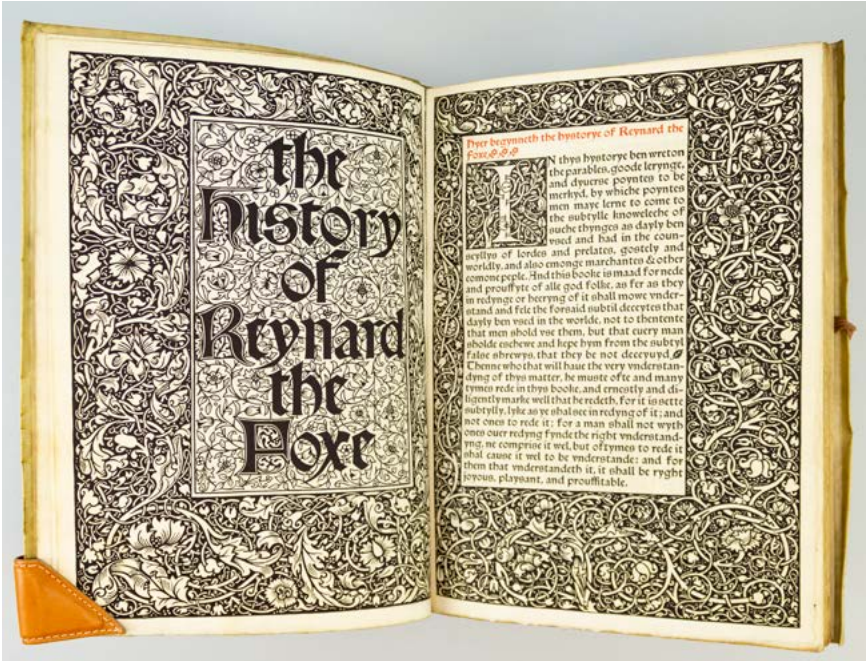 the
history
of
Reynard
the
Foxe
hyer begynneth the hystorye of Reynard the
Foxe
IN thys hystorye ben wreton
the parables, goode lerynge,
and dyuerse poyntes to be
merkyd, by whiche poyntes
men maye lerne to come to
the subtylle knoweleche of
suche thynges as dayly ben
vsed and had in the coun-
seyllys of lordes and prelates, gostely and
worldly, and also emonge marchantes & other
comone peple. And this booke is maad for nede
and prouffyte of alle god folke, as fer as they
in redynge or heeryng of it shall mowe vnder-
stand and fele the forsaid subtil deceytes that
dayly ben vsed in the worlde, not to thentente
that men shold vse them, but that euery man
sholde eschewe and kepe hym from the subtyl
false shrewys, that they be not deceyuyd.
Thenne who that will haue the very vnderstan-
dyng of thys matter, he muste ofte and many
tymes rede in thys booke, and ernestly and di-
ligently marke well that he redeth, for it is sette
subtylly, lyke as ye shal see in redyng of it; and
not ones to rede it; for a man shall not wyth
ones ouer redyng fynde the right vnderstand-
yng, ne comprise it wel, but oftymes to rede it
shal cause it wel to be vnderstande; and for
them that vnderstandeth it, it shall be ryght
joyous, playsant, and prouffitable.